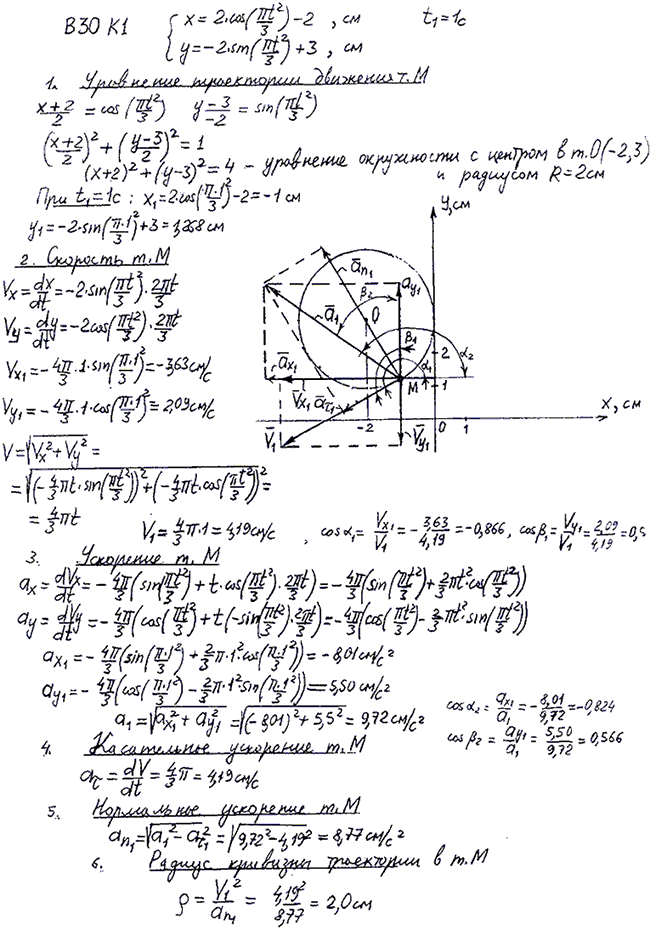 В30 К1 { x = 2·cos(πt²/3) - 2 , см t₁=1c
{ y = -2·sin(πt²/3) + 3 , см
1. Уравнение траектории движения т. М
(x+2)/2 = cos(πt²/3) (y-3)/-2 = sin(πt²/3)
((x+2)/2)² + ((y-3)/2)² = 1
(x+2)² + (y-3)² = 4 – уравнение окружности с центром в т.О(-2,3)
и радиусом R=2см
При t₁=1c : x₁=2·cos(π·1²/3)-2=-1 см
y₁=-2·sin(π·1²/3)+3=1,268 см
2. Скорость т. М
Vx = dx/dt = -2·sin(πt²/3)·2πt/3
Vy = dy/dt = -2cos(πt²/3)·2πt/3
Vx₁ = -4π/3·1·sin(π·1²/3) = -3,63 см/с
Vy₁ = -4π/3·1·cos(π·1²/3) = 2,09 см/с
V = √(Vx² + Vy²) =
= √((-4/3πt·sin(πt²/3))² + (-4/3πt·cos(πt²/3))²) =
= 4/3πt
V₁ = 4/3π·1 = 4,19 см/с , cosα₁ = Vx₁/V₁ = -3,63/4,19 = -0,866, cosβ₁ = Vy₁/V₁ = 2,09/4,19 = 0,5
y, см
x, см
ān₁
ay₁
β₂
ā₁
O
āx₁
β₁
α₁
α₂
2
M
1
V̄x₁
āτ₁
V̄₁
-2
V̄y₁
0
1
3. Ускорение т. М
ax = dVx/dt = -4π/3(sin(πt²/3) + t·cos(πt²/3)·2πt/3) = -4π/3(sin(πt²/3) + 2/3πt²·cos(πt²/3))
ay = dVy/dt = -4π/3(cos(πt²/3) + t(-sin(πt²/3)·2πt/3) = -4π/3(cos(πt²/3) - 2/3πt²·sin(πt²/3))
ax₁ = -4π/3(sin(π·1²/3) + 2/3π·1²·cos(π·1²/3)) = -8,01 см/с²
ay₁ = -4π/3(cos(π·1²/3) - 2/3π·1²·sin(π·1²/3)) = 5,50 см/с²
a₁ = √(ax₁² + ay₁²) = √((-8,01)² + 5,5²) = 9,72 см/с²
cosα₂ = ax₁/a₁ = -8,01/9,72 = -0,824
cosβ₂ = ay₁/a₁ = 5,50/9,72 = 0,566
4. Касательное ускорение т. М
aτ = dV/dt = 4/3π = 4,19 см/с
5. Нормальное ускорение т. М
an₁ = √(a₁² - aτ₁²) = √(9,72² - 4,19²) = 8,77 см/с²
6. Радиус кривизны траектории в т. М
ρ = V₁²/an₁ = 4,19²/8,77 = 2,0 см